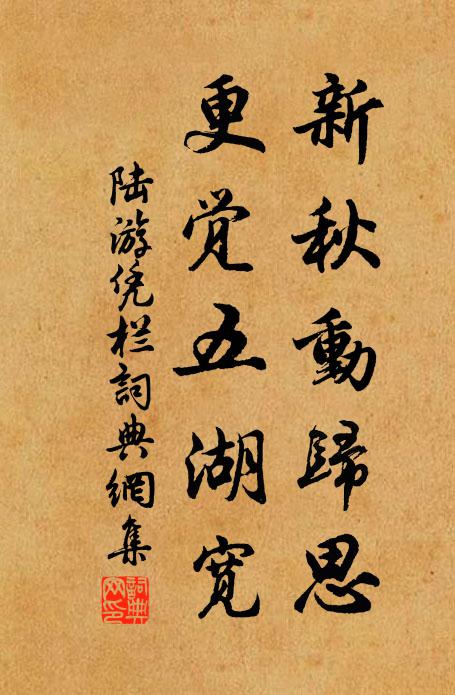 新秋動歸思
更觉五湖寬
陆游凭栏詞典網集
詞典
网印